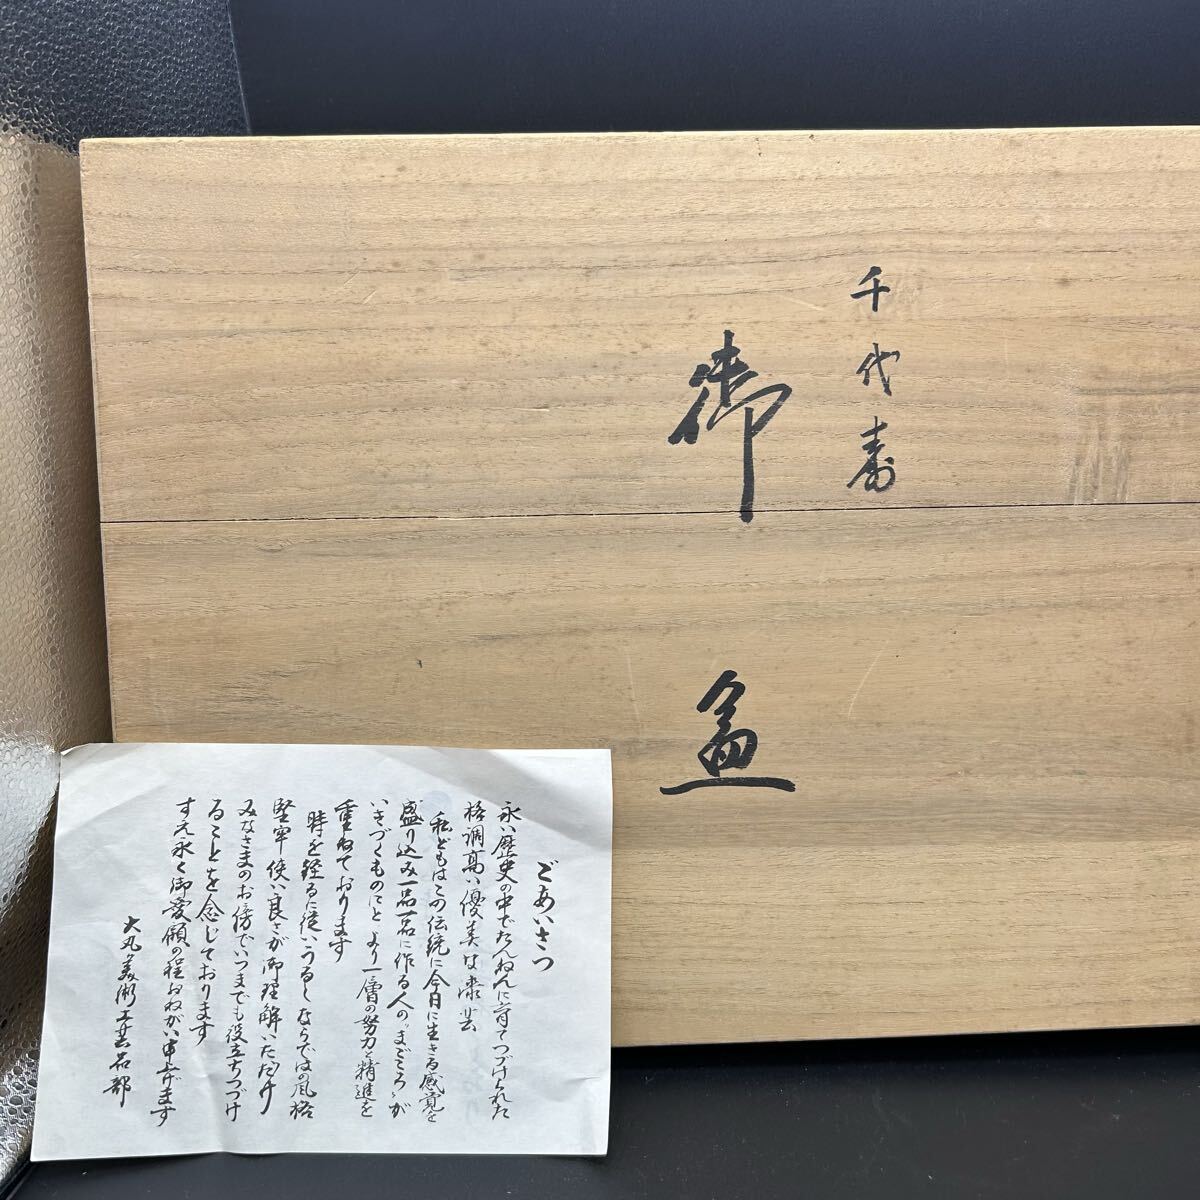 千代寿
御盆
ごあいさつ
永い歴史の中でたんねんに育てつづけられた
格調高い優美な漆芸
私どもはこの伝統に今日に生きる感覚を
盛り込み一品一品に作る人の〝まごころ〟が
いきづくものにとより一層の努力と精進を
重ねております
時を経るに従いうるしならではの風格
堅牢 使い良さが御理解いただけ
みなさまのお傍でいつまでも役立ちつづけ
ることを念じております
すえ永く御愛顧の程おねがい申上げます
大丸美術工芸品部